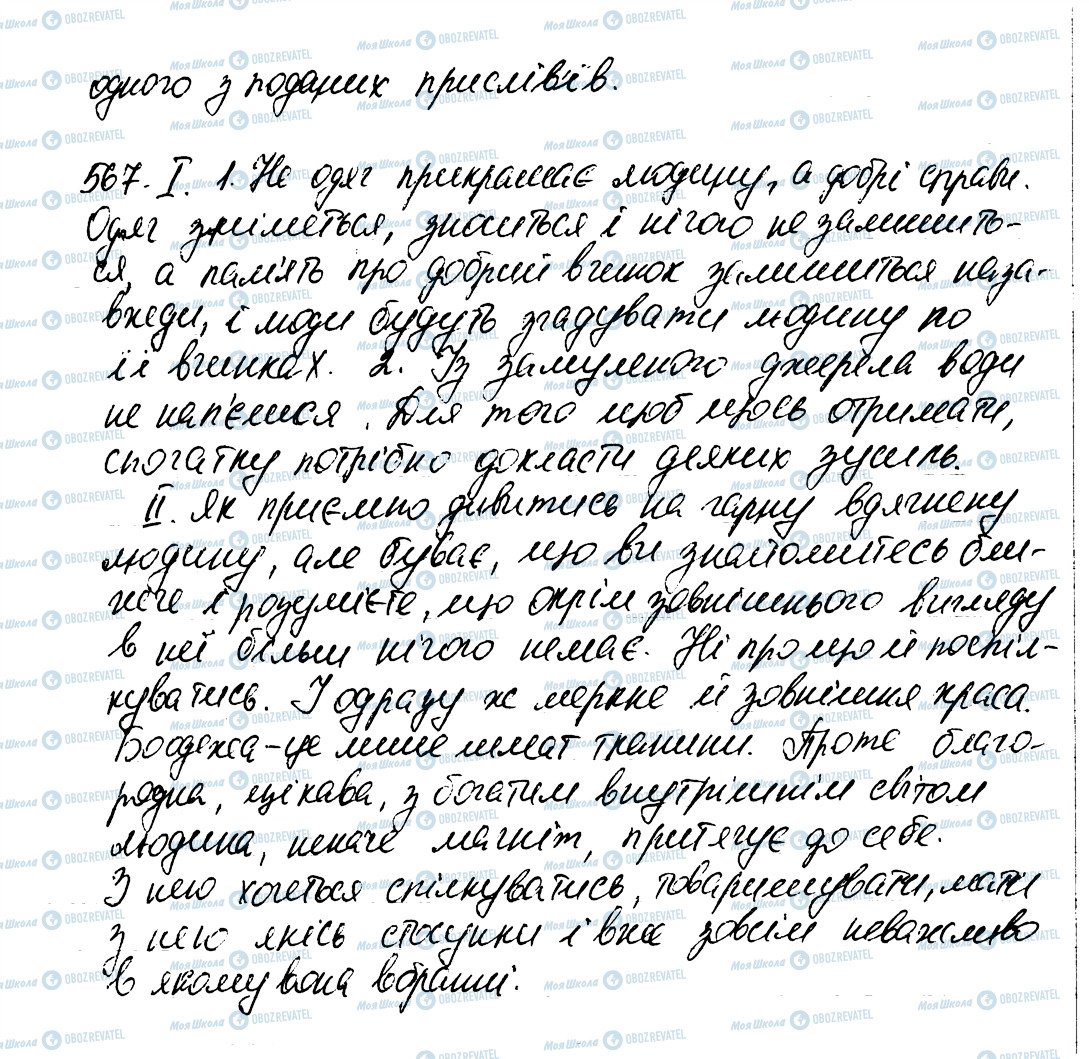 одного з поданих прислів'їв.
567. I. 1. Не одяг прикрашає людину, а добрі справи.
Одяг зніметься, зноситься і нічого не залишить-
ся, а пам'ять про добрий вчинок залишиться наза-
вжди, і люди будуть згадувати людину по
її вчинках. 2. Із замуленого джерела води
не нап'єшся. Для того щоб щось отримати,
спочатку потрібно докласти деяких зусиль.
II. Як приємно дивитись на гарну вдягнену
людину, але буває, що ви знайомитесь бли-
жче і розумієте, що окрім зовнішнього вигляду
в неї більш нічого немає. Ні про що й поспіл-
куватись. І одразу ж меркне й зовнішня краса.
Бо одежа – це лише шмат тканини. Проте благо-
родна, цікава, з богатим внутрішнім світом
людина, неначе магніт, притягує до себе.
З нею хочеться спілкуватись, товаришувати, мати
з нею якісь стосунки і вже зовсім неважливо
в якому вона вбранні.